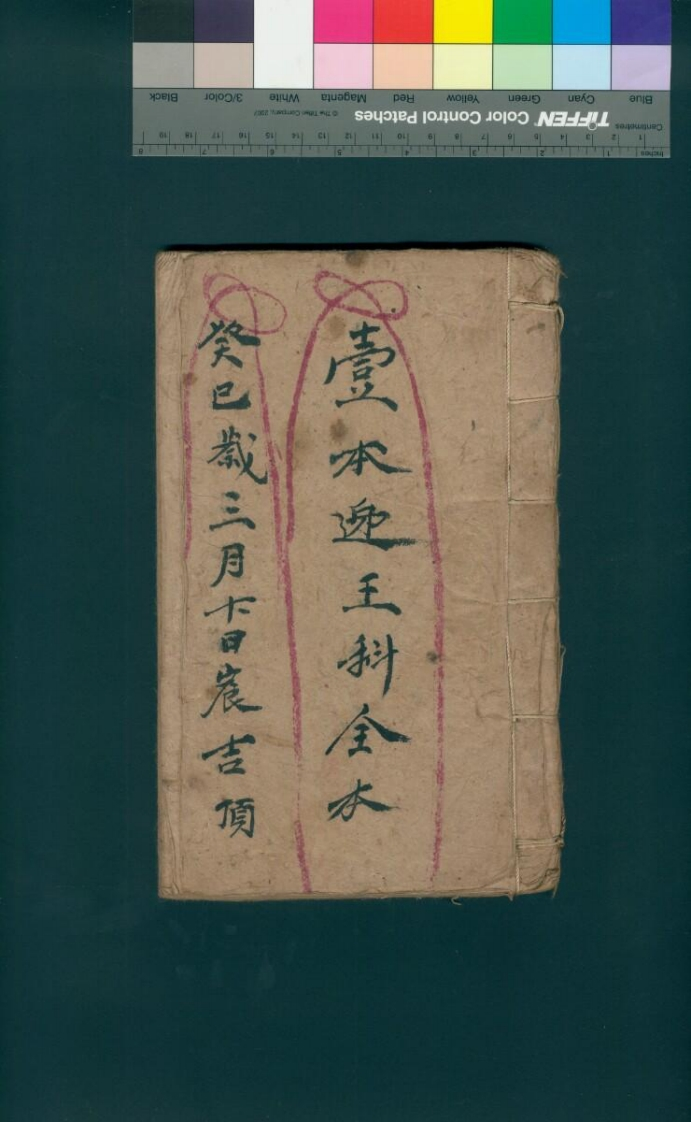 壹本迎王科全本
癸巳歲三月十日宸吉頂
Blue
Cyan
Green
Yellow
Red
Magenta
White
3/Color
Black
TIFFEN Color Control Patches
© The Tiffen Company, 2007
Centimetres
1 2 3 4 5 6 7 8 9 10 11 12 13 14 15 16 17 18 19
Inches
1 2 3 4 5 6 7 8